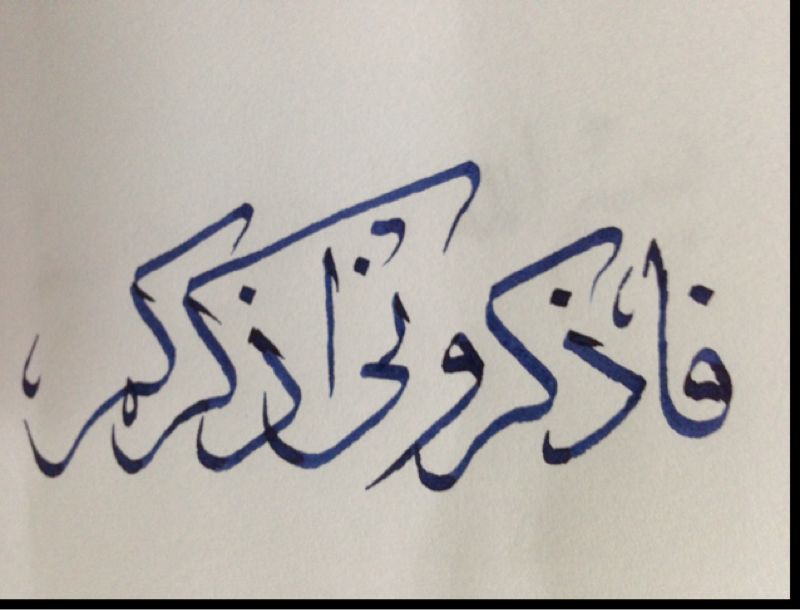 فاذكروني اذكركم